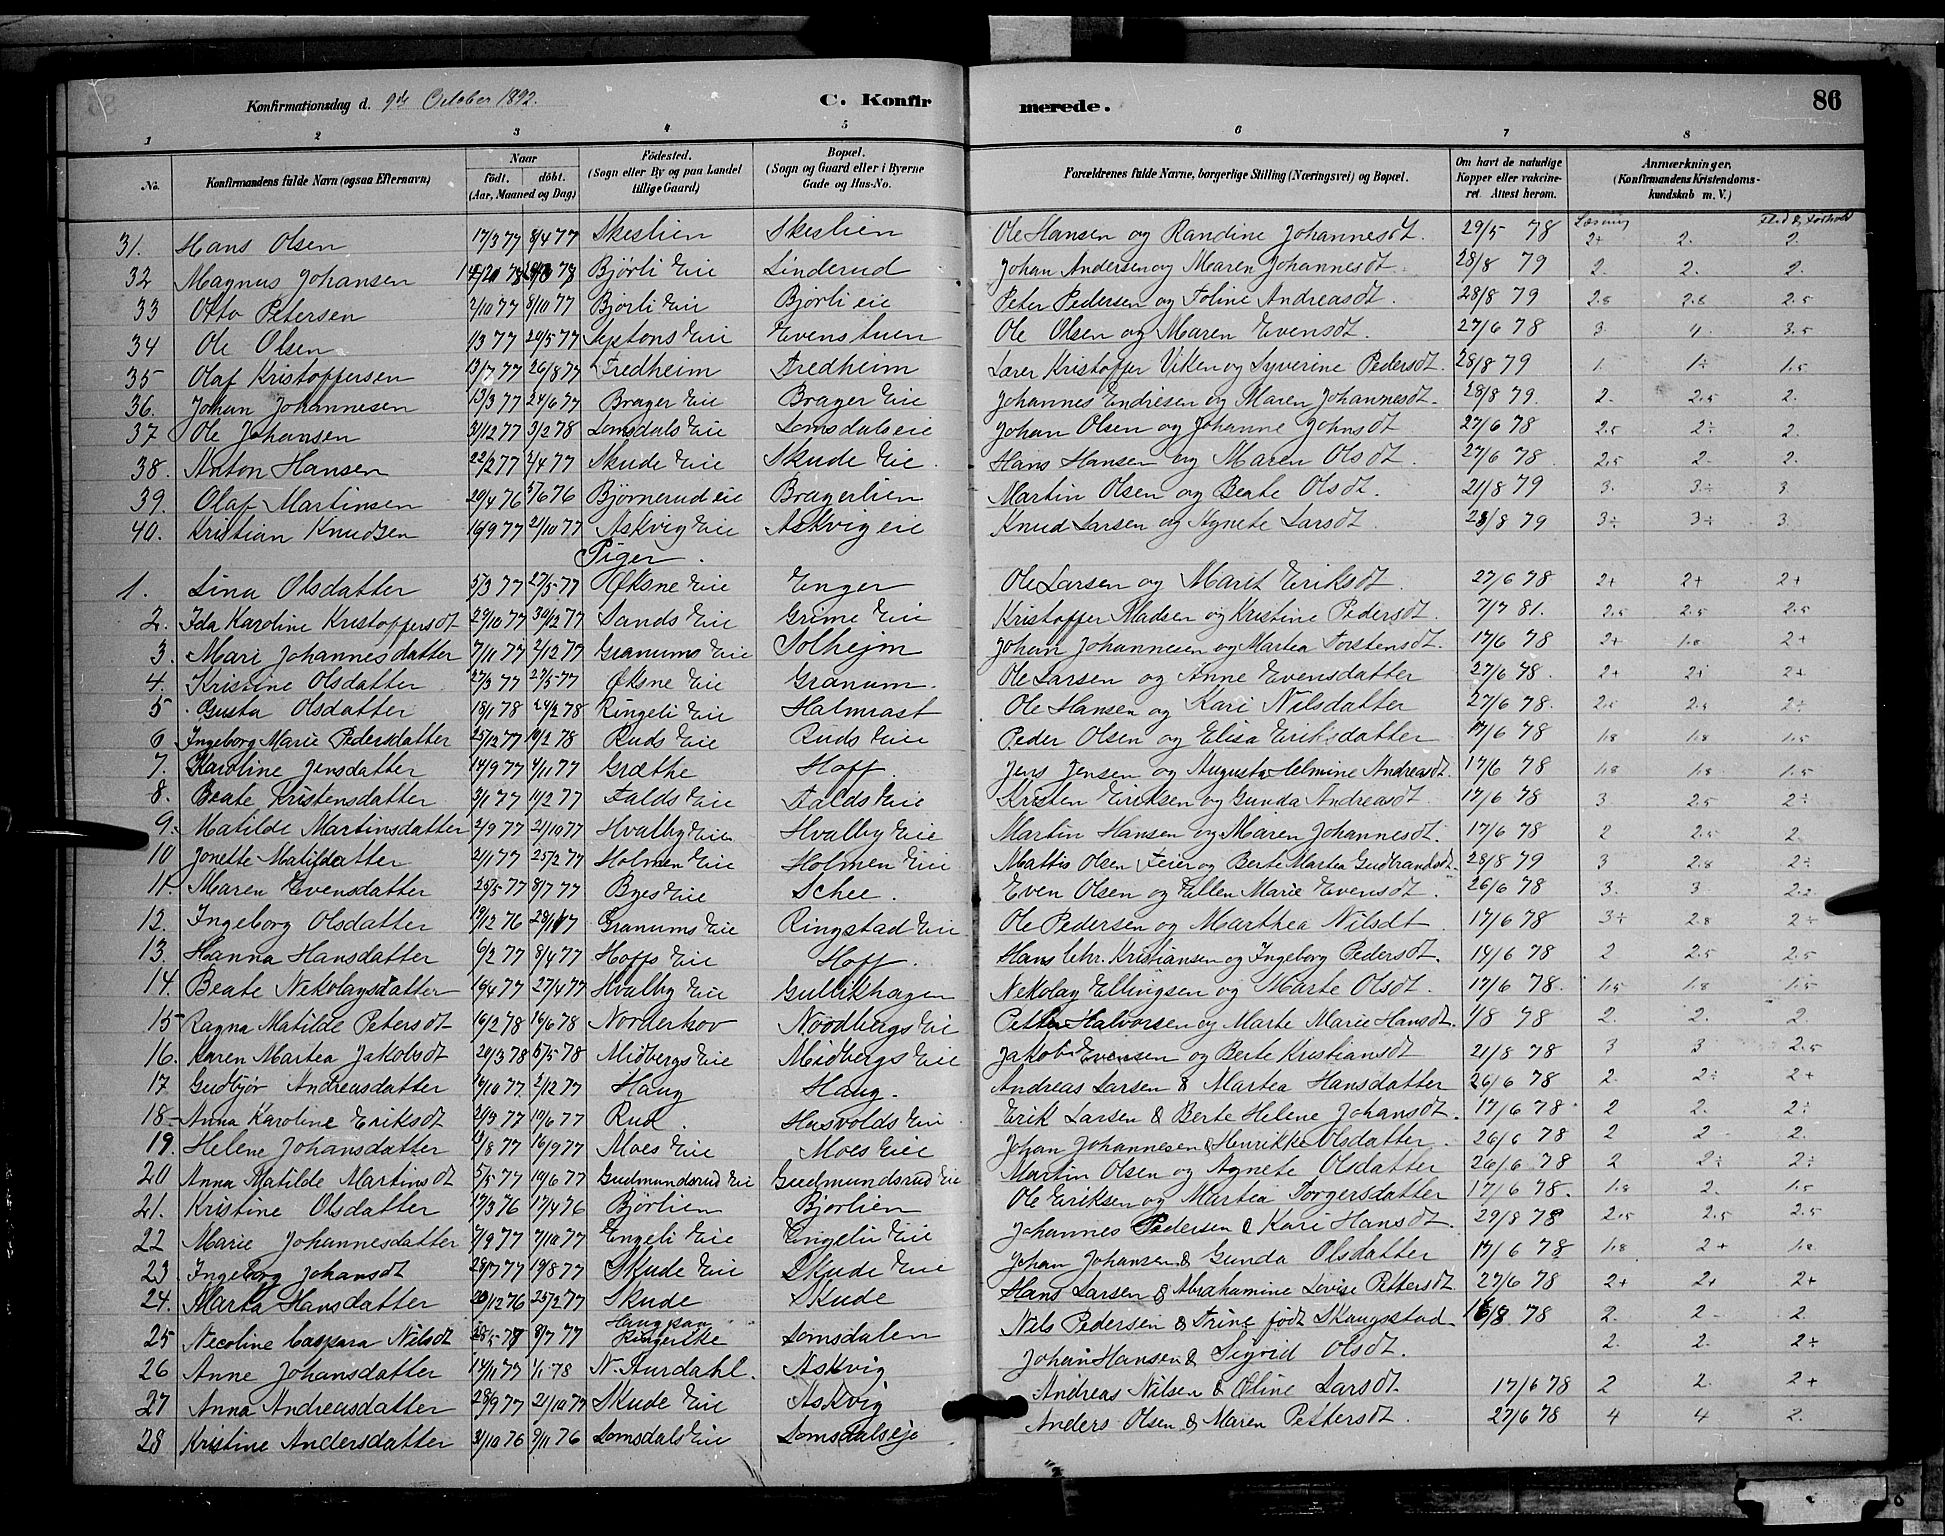 Konfirmationsdag d. 9de October 1892. C. Konfirmerede. 86
1 2 3 4 5 6 7 8
No. Konfirmandens fulde Navn (ogsaa Efternavn) Naar født. døbt. (Aar, Maaned og Dag) Födested. (Sogn eller By og paa Landet tillige Gaard) Bopæl. (Sogn og Gaard eller i Byerne Gade og Hus-No.) Forældrenes fulde Navne, borgerlige Stilling (Næringsvei) og Bopæl. Om havt de naturlige Kopper eller vakcineret. Attest herom. Anmærkninger. (Konfirmandens Kristendomskundskab m. V.)
31. Hans Olsen 17/3 77 8/4 77 Skeslien Skeslien Ole Hansen og Randine Johannesdt. 29/5 78 Læsning 2+ 2. 2.
32 Magnus Johansen Bjørli Eie Linderud Johan Andersen og Maren Johannesdt. 28/8 79 2. 2. 2.
33 Otto Petersen 2/10 77 8/10 77 Bjørli Eie Bjørli eie Peter Pedersen og Foline Andreasdt. 28/8 79 2.8 2.8 2.5
34 Ole Olsen 1/3 77 20/5 77 Eie Evenstuen Ole Olsen og Maren Evensdt. 27/6 78 3. 4. 3.5
35 Olaf Kristoffersen 13/7 77 26/8 77 Fredheim Fredheim Lærer Kristoffer Viken og Syverine Pedersdt. 28/8 79 1. 1÷ 1.5
36. Johan Johannesen 13/3 77 24/6 77 Brager Eie Brager Eie Johannes Endresen og Maren Johannesdt. 28/8 79. 2. 2.5 2.
37 Ole Johansen 31/12 77 3/2 78 Lomsdals Eie Lomsdals eie Johan Olsen og Johanne Johnsdt 27/6 78 2.5 2÷ 2.
38. Anton Hansen 22/2 77 2/4 77 Skude Eie Skude Eie. Hans Hansen og Maren Olsdt. 27/6 78. 2.5 2 2.
39. Olaf Martinsen 20/4 76 5/6 76 Bjørnerud eie Bragerlien Martin Olsen og Beate Olsdt. 21/8 79 3. 3÷ 3
40. Kristian Knudsen 16/9 77 21/10 77 Askvig Eie Askvig eie Knud Larsen og Agnete Larsdt. 28/8 79 3÷ 3÷ 3.
Piger.
1. Lina Olsdatter 5/3 77 27/5 77 Øksne Eie Enger Ole Larsen og Marit Eriksdt. 27/6 78 2+ 2+ 2+
2. Ida Karoline Kristoffersdt 29/10 77 30/12 77 Sands Eie Grime Eie Kristoffer Madsen og Kristine Pedersdt. 7/7 81. 2.5 2.5 2.5
3. Mari Johannesdatter 7/11 77 2/12 77 Granums Eie Solhejm Johan Johannesen og Martea Torstensdt. 17/6 78 2+ 1.8 2+
4. Kristine Olsdatter 27/3 77 27/5 77 Øksne Eie Granum. Ole Larsen og Anne Evensdatter 27/6 78. 2+ 2+ 2+
5. Gusta Olsdatter 18/1 78 24/2 78 Ringeli Eie Halmrast Ole Hansen og Kari Nilsdatter 27/6 78. 2.5 2.5 2÷
6 Ingeborg Marie Pedersdatter 25/12 77 10/2 78 Ruds Eie Ruds Eie Peder Olsen og Elisa Eriksdatter 17/6 78 1.8 1.8 1.5
7. Karoline Jensdatter 14/9 77 4/11 77 Græthe Hoff. Jens Jensen og Augusta Andreasdt. 17/6 78 1.8 1.8 1.5
8. Beate Kristensdatter 3/1 77 11/2 77 Falds Eie Falds Eie Kristen Eriksen og Gunda Andreasdt 17/6 78 3 2.5 2÷
9. Matilde Martinsdatter 2/9 77 21/10 77 Hvalby Eie Hvalby Eie Martin Hansen og Maren Johannesdt. 17/6 78 2 2.5 2.
10 Jonette 2/1 77 25/2 77 Holmen Eie Holmen Eie Mattis Olsen Feier og Berte Martea Gudbrandsdt. 28/8 79 3 2.8 2÷
11. Maren Evensdatter 25/5 77 8/7 77 Byes Eie Schee. Even Olsen og Ellen Marie Evensdt. 26/6 78 3. 3. 2÷
12. Ingeborg Olsdatter 19/12 76 Granums Eie Ringstad Eie Ole Pedersen og Marthea Nilsdt 17/6 78 3÷ 2.8 2÷
13. Hanna Hansdatter 6/2 77 8/4 77 Hoffs Eie Hoff. Hans Chr. Kristiansen og Ingeborg Pedersdt. 14/6 78 2 2.5 2.5
14. Beate Nekolaysdatter 10/4 77 27/4 77 Hvalby Eie Gullikhagen Nekolay Ellingsen og Marte Olsdt. 17/6 78. 1.5 1.8 1.5
15 Ragna Matilde Petersdt 16/2 78 16/6 78 Norderhov Noodbergs Eie Petter Halvorsen og Marte Marie Hansdt. 1/8 78 2. 2. 2.
16. Karen Martea Jakobsdt 20/3 78 5/5 78 Midbergs Eie Midbergs Eie Jakob Evensen og Berte Kristiansdt 21/8 78 3 3 2.5
17 Gudbjør Andreasdatter 10/10 77. 2/12 77 Haug Haug. Andreas Larsen & Martea Hansdatter 26/6 78 2. 2÷ 2+
18- Anna Karoline Eriksdt 21/3 77 10/6 77 Rud. Husvolds Eie Erik Larsen & Berte Helene Johansdt. 17/6 78 2 2. 2÷
19. Helene Johansdatter 4/8 77 16/9 77 Moes Eie Moes Eie Johan Johannesen & Henrikke Olsdatter. 26/6 78 2 2 2.
20 Anna Matilde Martinsdt 5/5 77 10/6 77 Gudmundsrud Eie Gudmundsrud Eie Martin Olsen og Agnete Olsdatter 26/6 78 2 2÷ 2÷
21. Kristine Olsdatter 12/3 76 17/4 76 Bjørlien Bjørlien Ole Eriksen og Martea Torgersdatter 17/6 78. 1.8 2. 1.5
22 Marie Johannesdatter 7/9 77 7/10 77 Engeli Eie Engelie Eie Johannes Pedersen & Kari Hansdt. 29/8 78 2.5 2.5 2.5
23. Ingeborg Johansdt 29/7 77 19/8 77 Skude Eie Skude Eie Johan Johansen & Gunda Olsdatter 17/6 78 1.8 2+ 1.8
24. Marta Hansdatter 20/12 76 25/2 77 Skude Skude Hans Larsen & Abrahamine Lovise Pettersdt 27/6 78 2+ 2+ 2+
25 Necoline Caspara Nilsdt 28/5 77 8/7 77 Haug paa Ringerike Lomsdalen Nils Pedersen & Trine født Skaugstad 78 2. 2- 2.
26 Anne Johansdatter 14/11 77 1/1 78 N. Aurdahl. Askvig Johan Hansen & Sigrid Olsdt. 2. 2. 2÷
27 Anna Andreasdatter 28/9 77 21/10 77 Skude Eie Askvig Andreas Nilsen & Oline Larsdt. 17/6 78 2 2. 2+
28 Kristine Andersdatter 31/10 76 9/11 76 Lomsdals Eie Lomsdalseje Anders Olsen & Maren Pettersdt. 27/6 78 4 4 2.